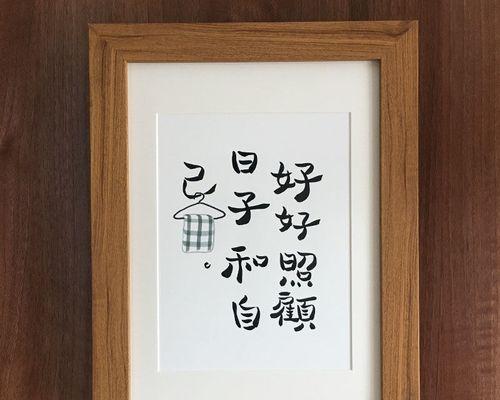 好好照顧
日子和自
己。